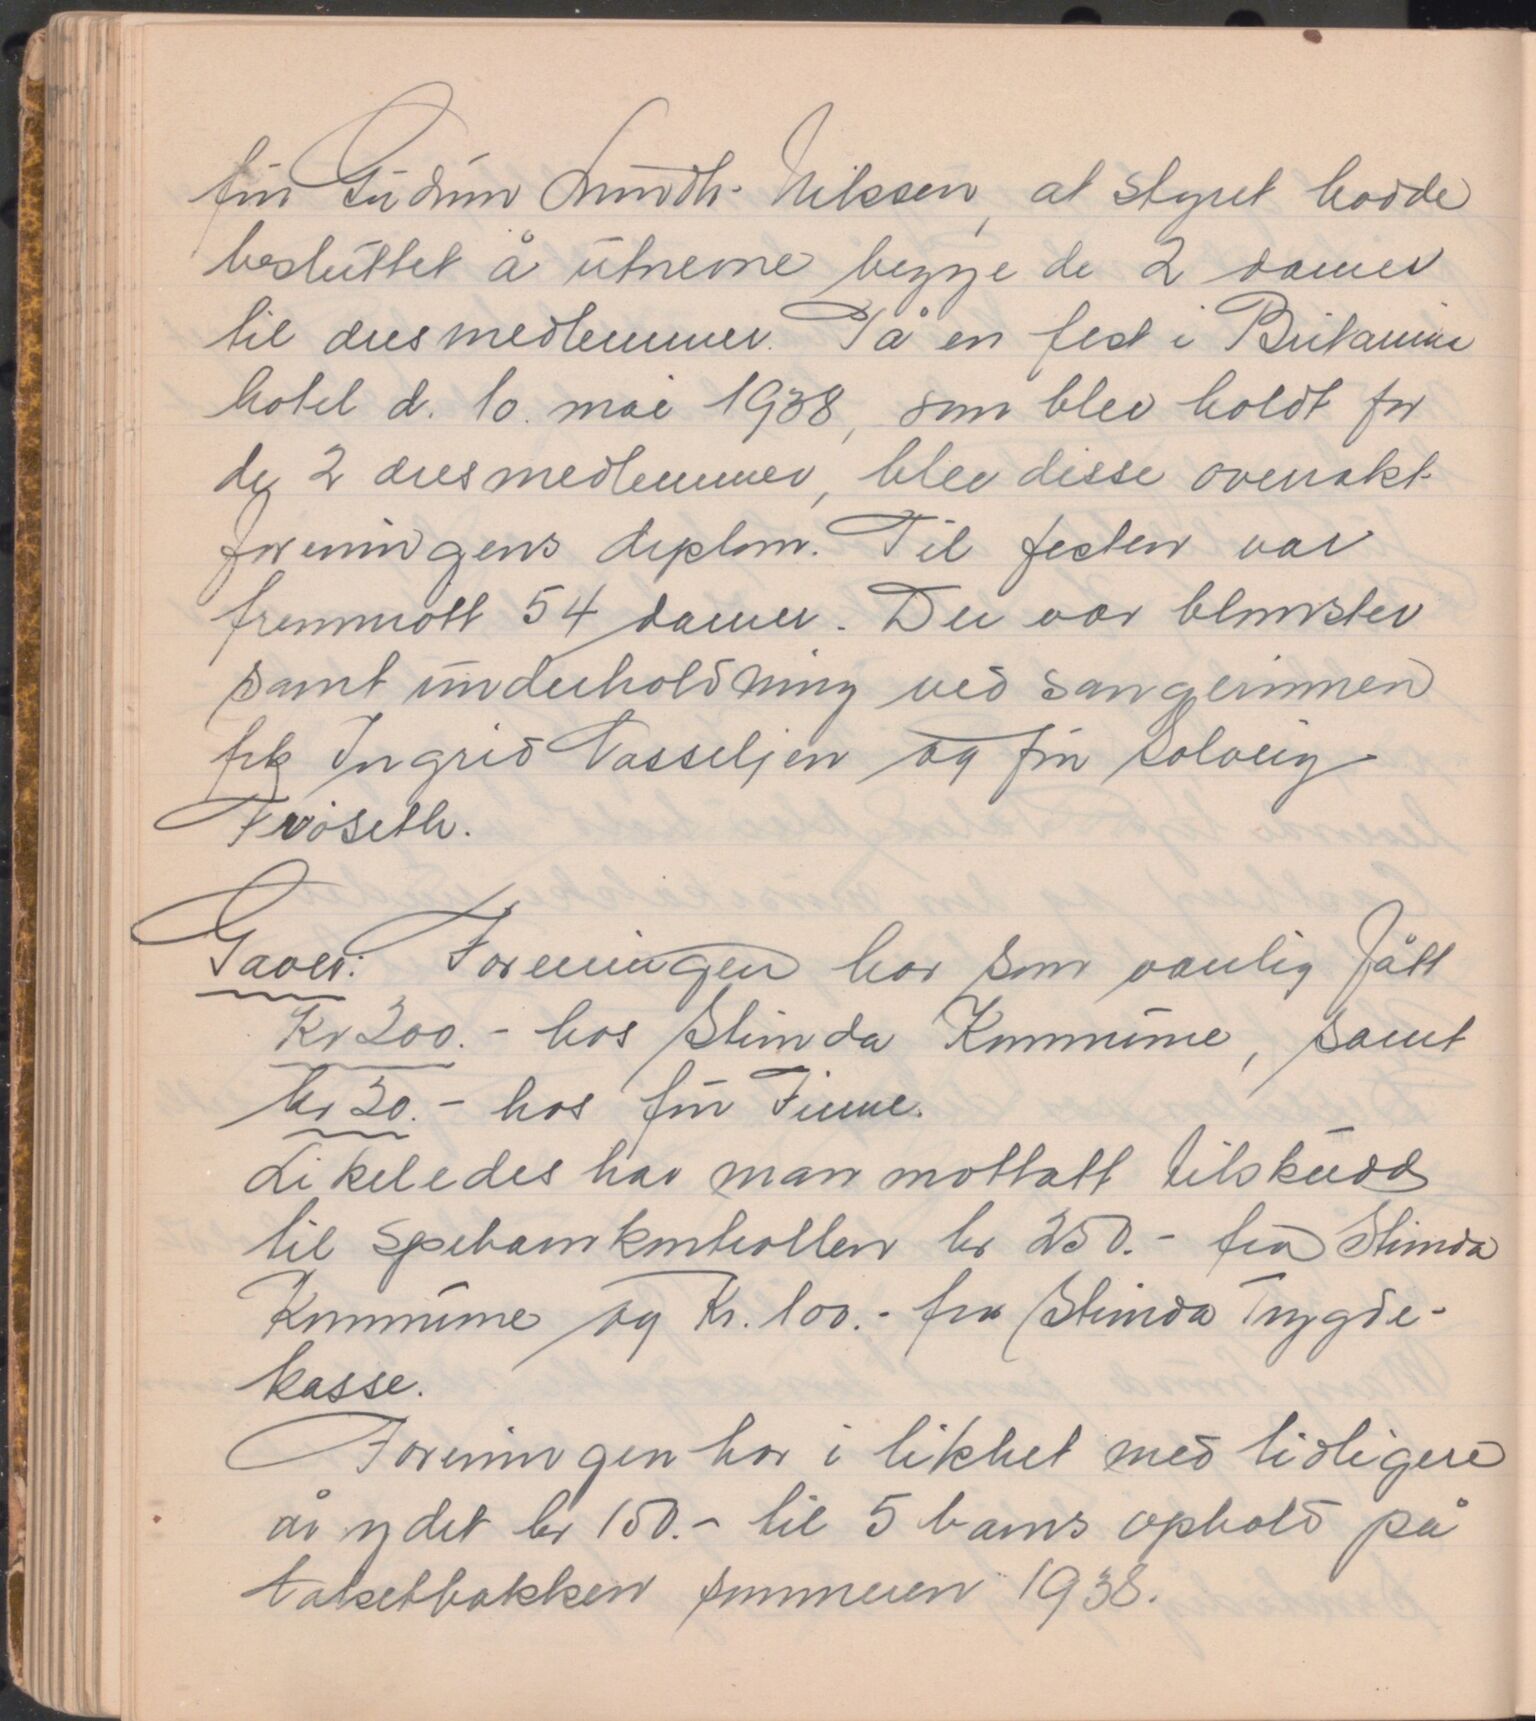 frú Gudrun Lundh-Nilssen, at styret hadde
besluttet å utnevne begge de 2 damer
til æresmedlemmer. På en fest i Britannia
hotel d. 10. mai 1938, som blev holdt for
de 2 æresmedlemmer, blev disse overrakt
foreningens diplom. Til festen var
fremmøtt 54 damer. Der var blomster
samt underholdning ved sangerinnen
frk Ingrid Vasseljen og fru Solveig
Frøseth.
Gaver: Foreningen har som vanlig fått
Kr 200.- hos Strinda Kommune, samt
kr 20.- hos fru Finne.
Likeledes har man mottatt tilskudd
til spebarnkontrollen kr 250.- fra Strinda
Kommune og Kr. 100.- fra Strinda Trygde-
kasse.
Foreningen har i likhet med tidligere
år ydet kr 150.- til 5 barns ophold på
sommeren 1938.